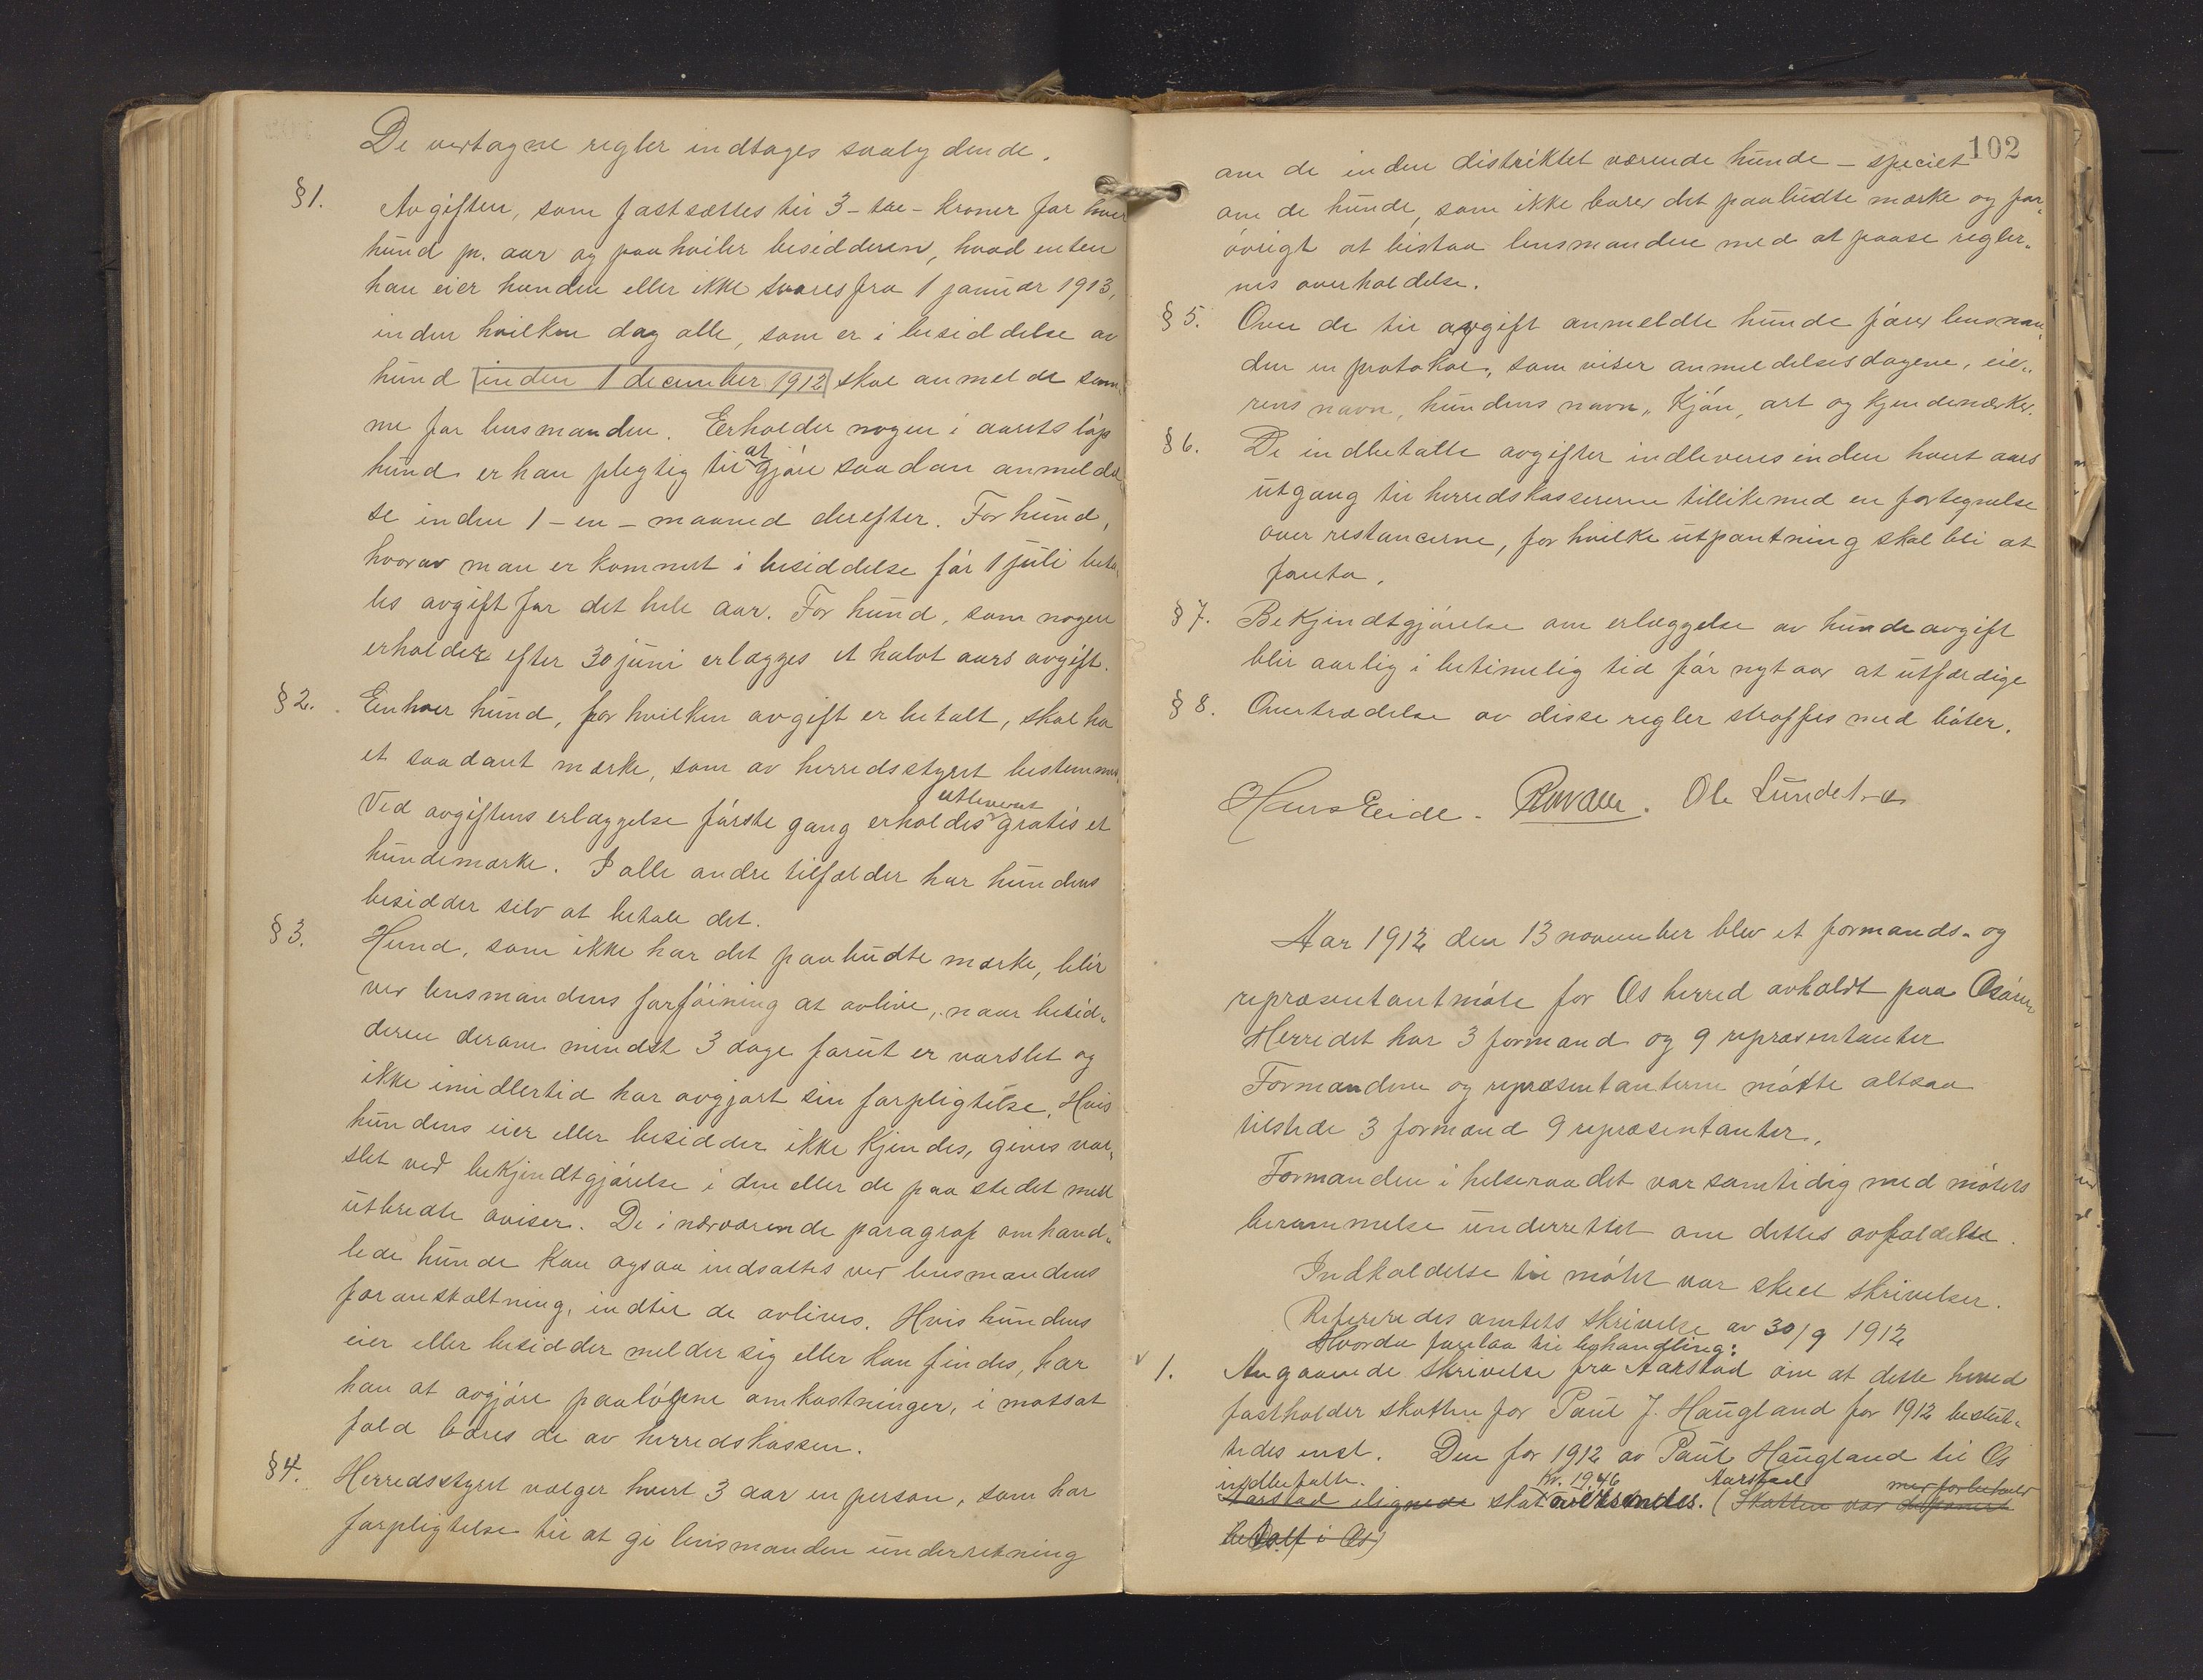 De vertagne regler indtages saalydende.
§1. Avgiften, som fastsættes til 3 - tre - kroner for hver
hund pr. aar og paahviler besidderen, hvad enten
han eier hunden eller ikke svares fra 1 januar 1913,
inden hvilken dag alle, som er i besiddelse av
hund inden 1 december 1912 skal anmelde sam-
me for lensmanden. Erholder nogen i aarets løp
hund er han plegtig til at gjøre saadan anmeldel-
se inden 1 - en - maaned derefter. For hund,
hvorav man er kommet i besiddelse før 1 juli beta-
les avgift for det hele aar. For hund, som nogen
erholder efter 30 juni erlægges et halvt aars avgift.
§2. Enhver hund, for hvilken avgift er betalt, skal ha
et saadant mærke, som av herredsstyret bestemmes.
Ved avgiftens erlæggelse første gang erholdes utleveret gratis et
hundemærke. I alle andre tilfælder har hundens
besidder selv at betale det.
§3. Hund, som ikke har det paabudte mærke, blir
ver lensmandens forføining at avlive, naar besid-
deren derom mindst 3 dage forut er varslet og
ikke imidlertid har avgjort sin forpligtelse. Hvis
hundens eier eller besidder ikke kjendes, gives var-
slet ved bekjendtgjørelse i den eller de paa stedet mest
utbredte aviser. De i nærværende paragraf omhand-
lede hunde kan ogsaa indsættes ver lensmandens
foranstaltning, indtil de avlives. Hvis hundens
eier eller besidder melder sig eller kan findes, har
han at avgjøre paaløpne omkostninger, i motsat
fald bæres de av herredskassen.
§4. Herredsstyret vælger hvert 3 aar en person, som har
forpligtelse til at gi lensmanden underretning
102
om de inden distriktet værende hunde - specielt
om de hunde, som ikke bærer det paabudte mærke og for-
øvrigt at bistaa lensmanden med at paase regler-
nes overholdelse.
§5. Over de til avgift anmeldte hunde fører lensman-
den en protokol, som viser anmeldelsesdagene, eie-
rens navn, hundens navn, kjøn, art og kjendemærker.
§6. De indbetalte avgifter indleveres inden hvert aars
utgang til herredskassereren tillikemed en fortegnelse
over restancerne, for hvilke utpantning skal bli at
foreta.
§7. Bekjendtgjørelse om erlæggelse av hundeavgift
blir aarlig i betimelig tid før nytaar at utfærdige
§8. Overtrædelse av disse regler straffes med bøter.
Hans Eide. Ole Lundetræ
Aar 1912 den 13 november blev et formands- og
repræsentantmøte for Os herred avholdt paa Osøren
Herredet har 3 formænd og 9 repræsentanter
Formændene og repræsentanterne møtte altsaa
tilstede 3 formænd 9 repræsentanter.
Formanden i helseraadet var samtidig med møtets
berammelse underrettet om dettes avholdelse.
Indkaldelse til møtet var skeet skrivelser.
Refereredes amtets skrivelse av 30/9 1912
Hvorda forelaa til behandling:
1. Angaaende skrivelse fra Aarstad om at dette herred
fastholder skatten for Paul J. Haugland for 1912 beslut-
tedes enst. Den for 1912 av Paul Haugland til Os
indbetalte Kr. 19,46 Aarstad mer forbehold
Aarstad ilignede skat oversendes. (Skatten var deponert
betalt i Os)